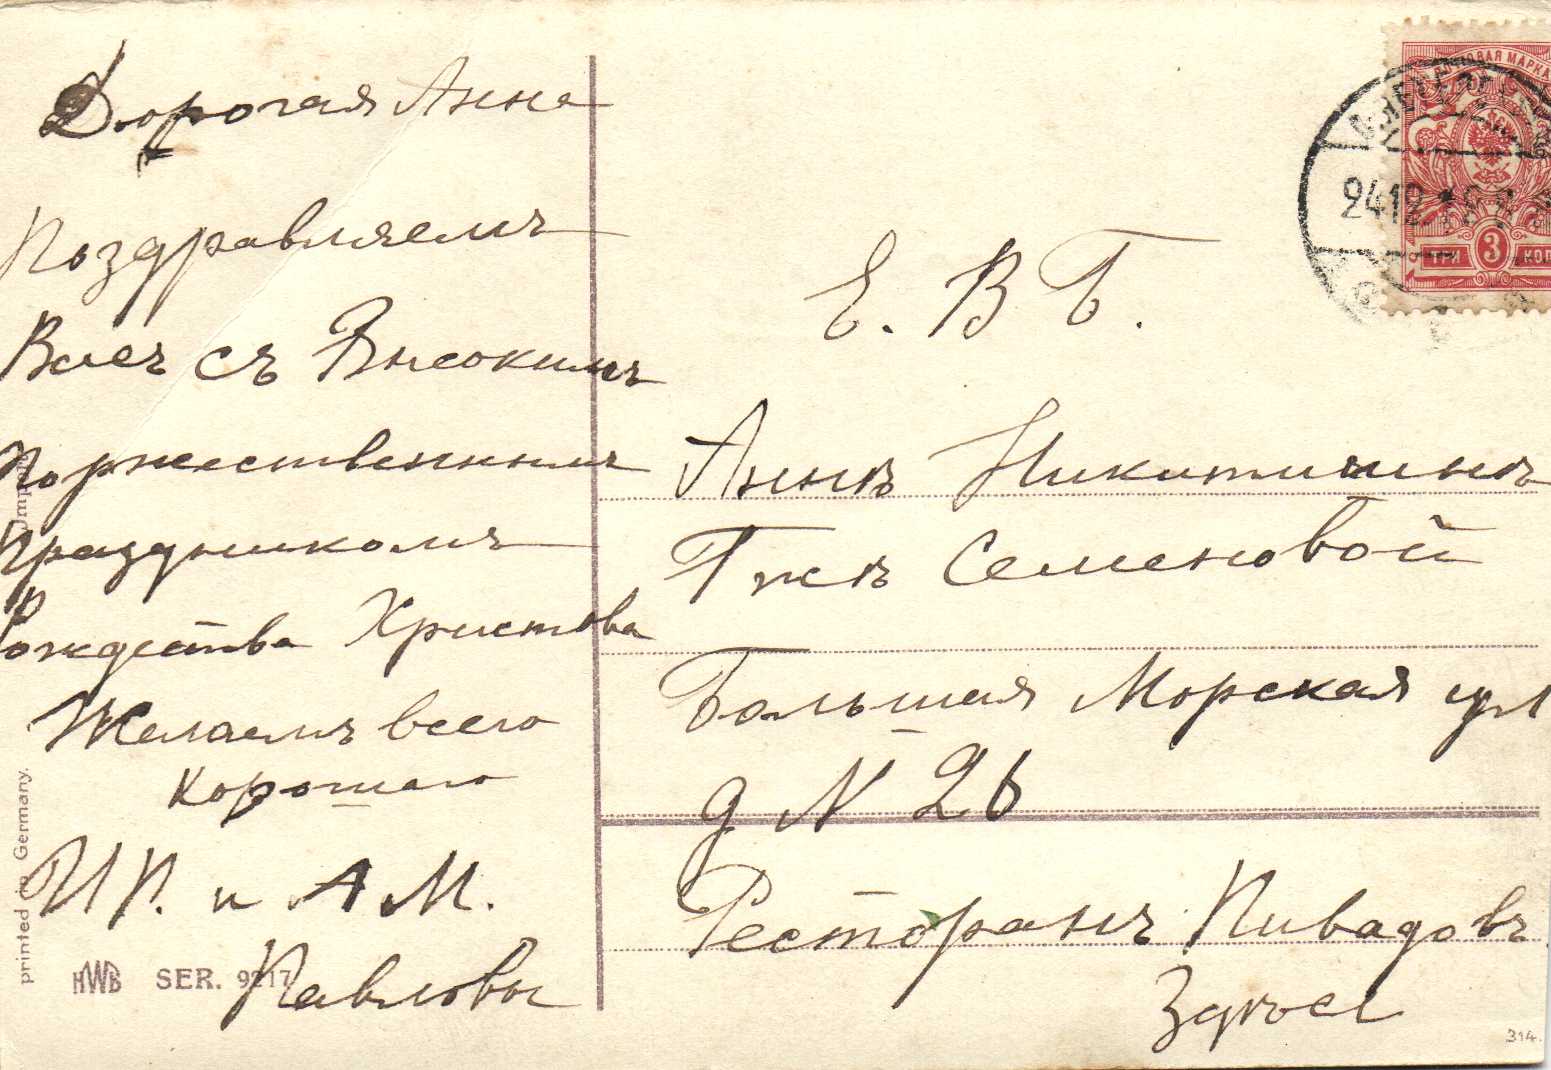 Дорогая Анна
Поздравляемъ
Васъ съ Высоким
торжественнымъ
праздникомъ
Рождества Христова
Желаемъ всего
хорошаго
И П. и А М.
Павловы
Е. В Б.
Аннѣ Никитичнѣ
Гжѣ Семеновой
Большая Морская ул
д N 26
Ресторанъ
Здѣсь
МАРКА
24 12
ТРИ 3 КОП
printed in Germany.
HWB SER. 9217
314.